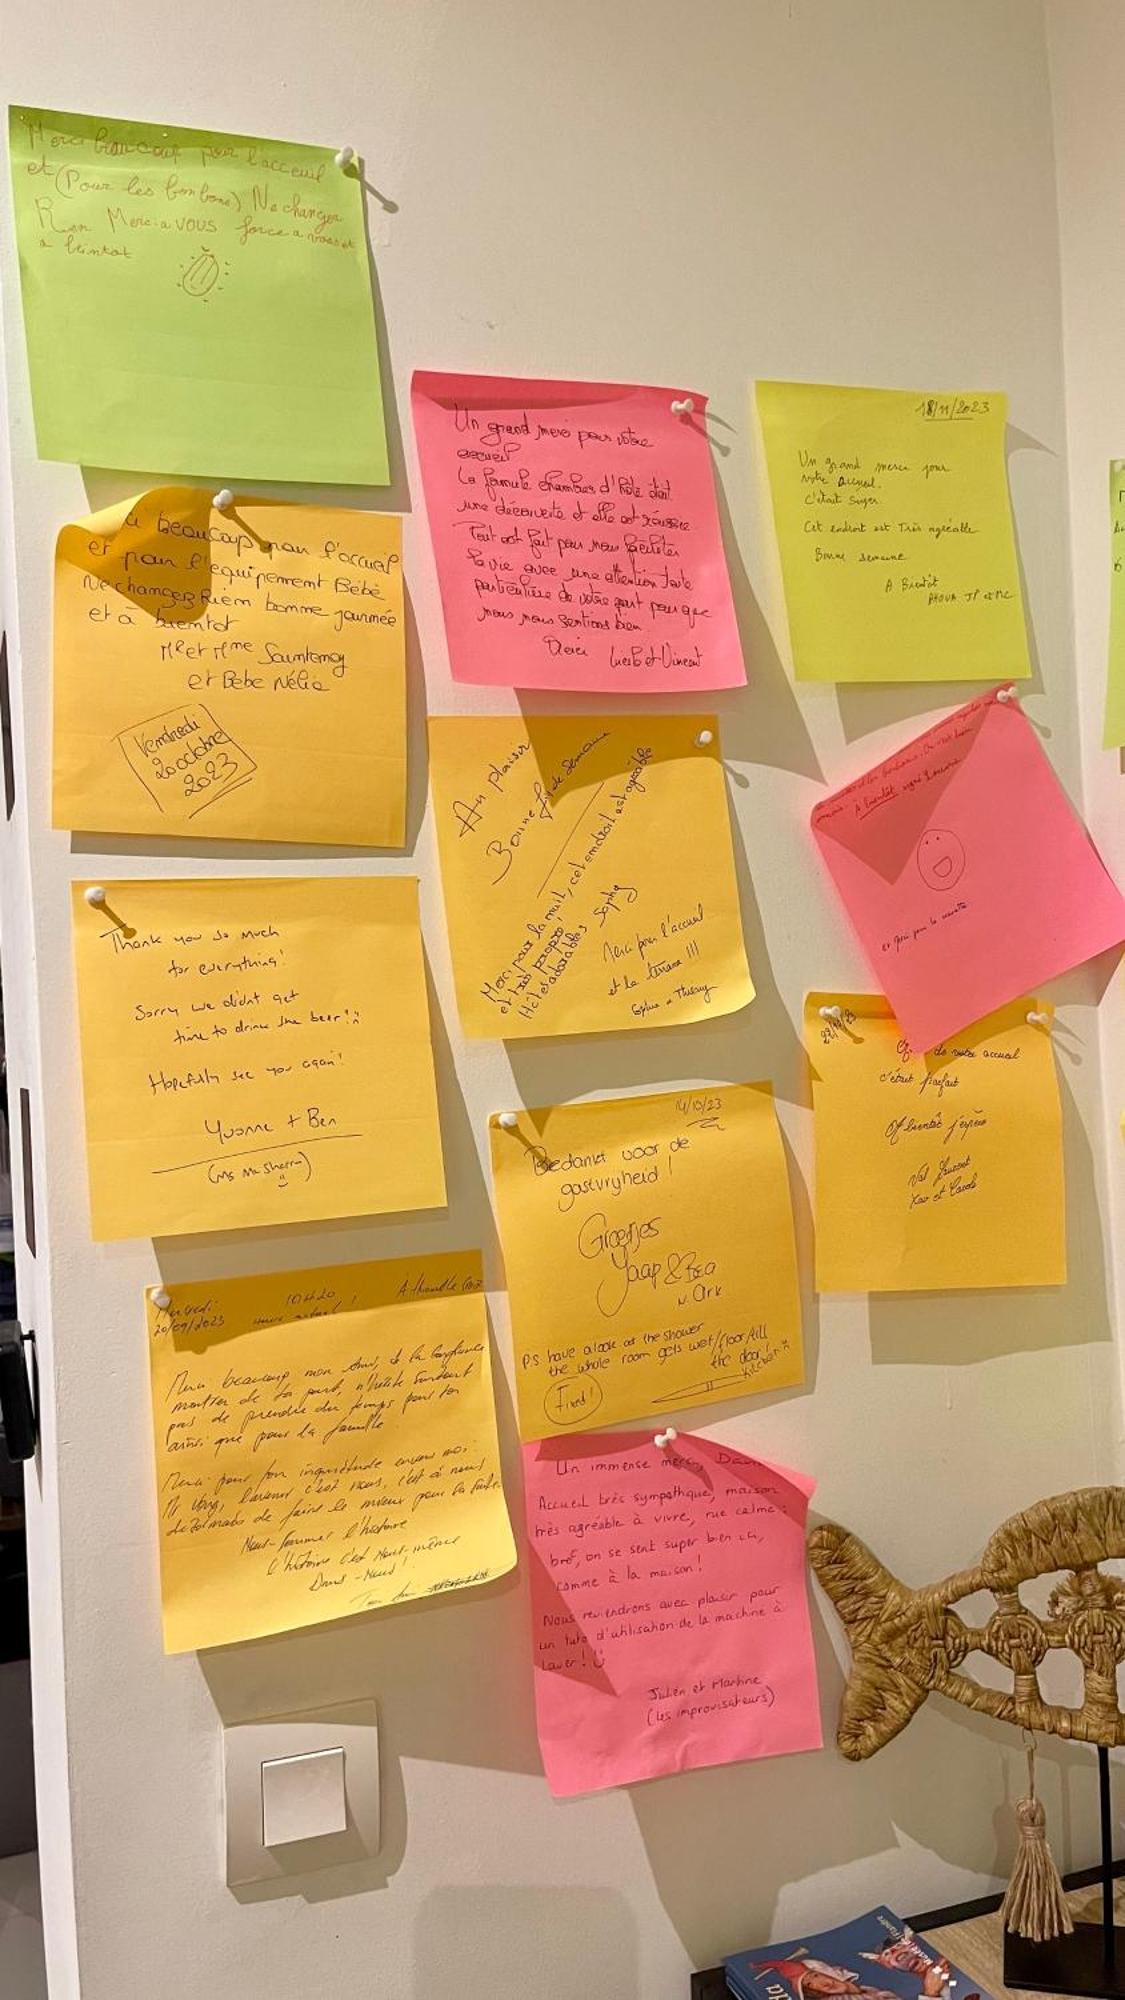 Merci beaucoup pour l'acceuil
et (Pour les bonbons) Ne changer
Rien Merci a VOUS force a vous et
a bientot
beaucoup pour l'accueil
et pour l'equipement Bébé
Ne changez Rien bonne journée
et à bientot
Mr et Mme Saintenoy
et Bébé Nélia
Vendredi
20 octobre
2023
Thank you so much
for everything!
Sorry we didnt get
time to drink the beer!
Hopefully see you again!
Yvonne + Ben
Mercredi
20/09/2023
10H20
Merci beaucoup mon ami, de la confiance
montrer de ta part, n'hésite surtout
pas de prendre du temps pour toi
ainsi que pour la famille
Merci pour ton inquiétude envers moi.
l'avenir c'est nous, c'est à nous
de faire le mieux pour la suite.
Nous-sommes l'histoire
l'histoire c'est Nous-même
Dans-Nous!
Un grand merci pour votre
accueil
La formule chambres d'hôte était
une découverte et elle est réussie
Tout est fait pour nous faciliter
la vie avec une attention toute
particulière de votre part pour que
nous nous sentions bien.
Merci
et Vincent
Au plaisir
Bonne fin de semaine
Merci pour la nuit, cet endroit est agréable
et très propre,
Hôtes adorables Sophy
Merci pour l'accueil
et la terrasse !!!
14/10/23
Bedankt voor de
gastvryheid!
Groetjes
Jaap & Bea
v. Ark
P.S have a look at the shower
the whole room gets wet/floor/till
the door!
kitchen
Fixed!
Un immense merci,
Accueil très sympathique, maison
très agréable à vivre, rue calme :
bref, on se sent super bien ici,
comme à la maison!
Nous reviendrons avec plaisir pour
un tuto d'utilisation de la machine à
laver!
Julien et Martine
(les improvisateurs)
18/11/2023
Un grand merci pour
votre accueil.
c'était super.
Cet endroit est très agréable
Bonne semaine
A Bientôt
JP et MC
A bientôt
et Merci pour la
de votre accueil
c'était parfait
A bientôt j'espère
Val Laurent
Xav et Carole